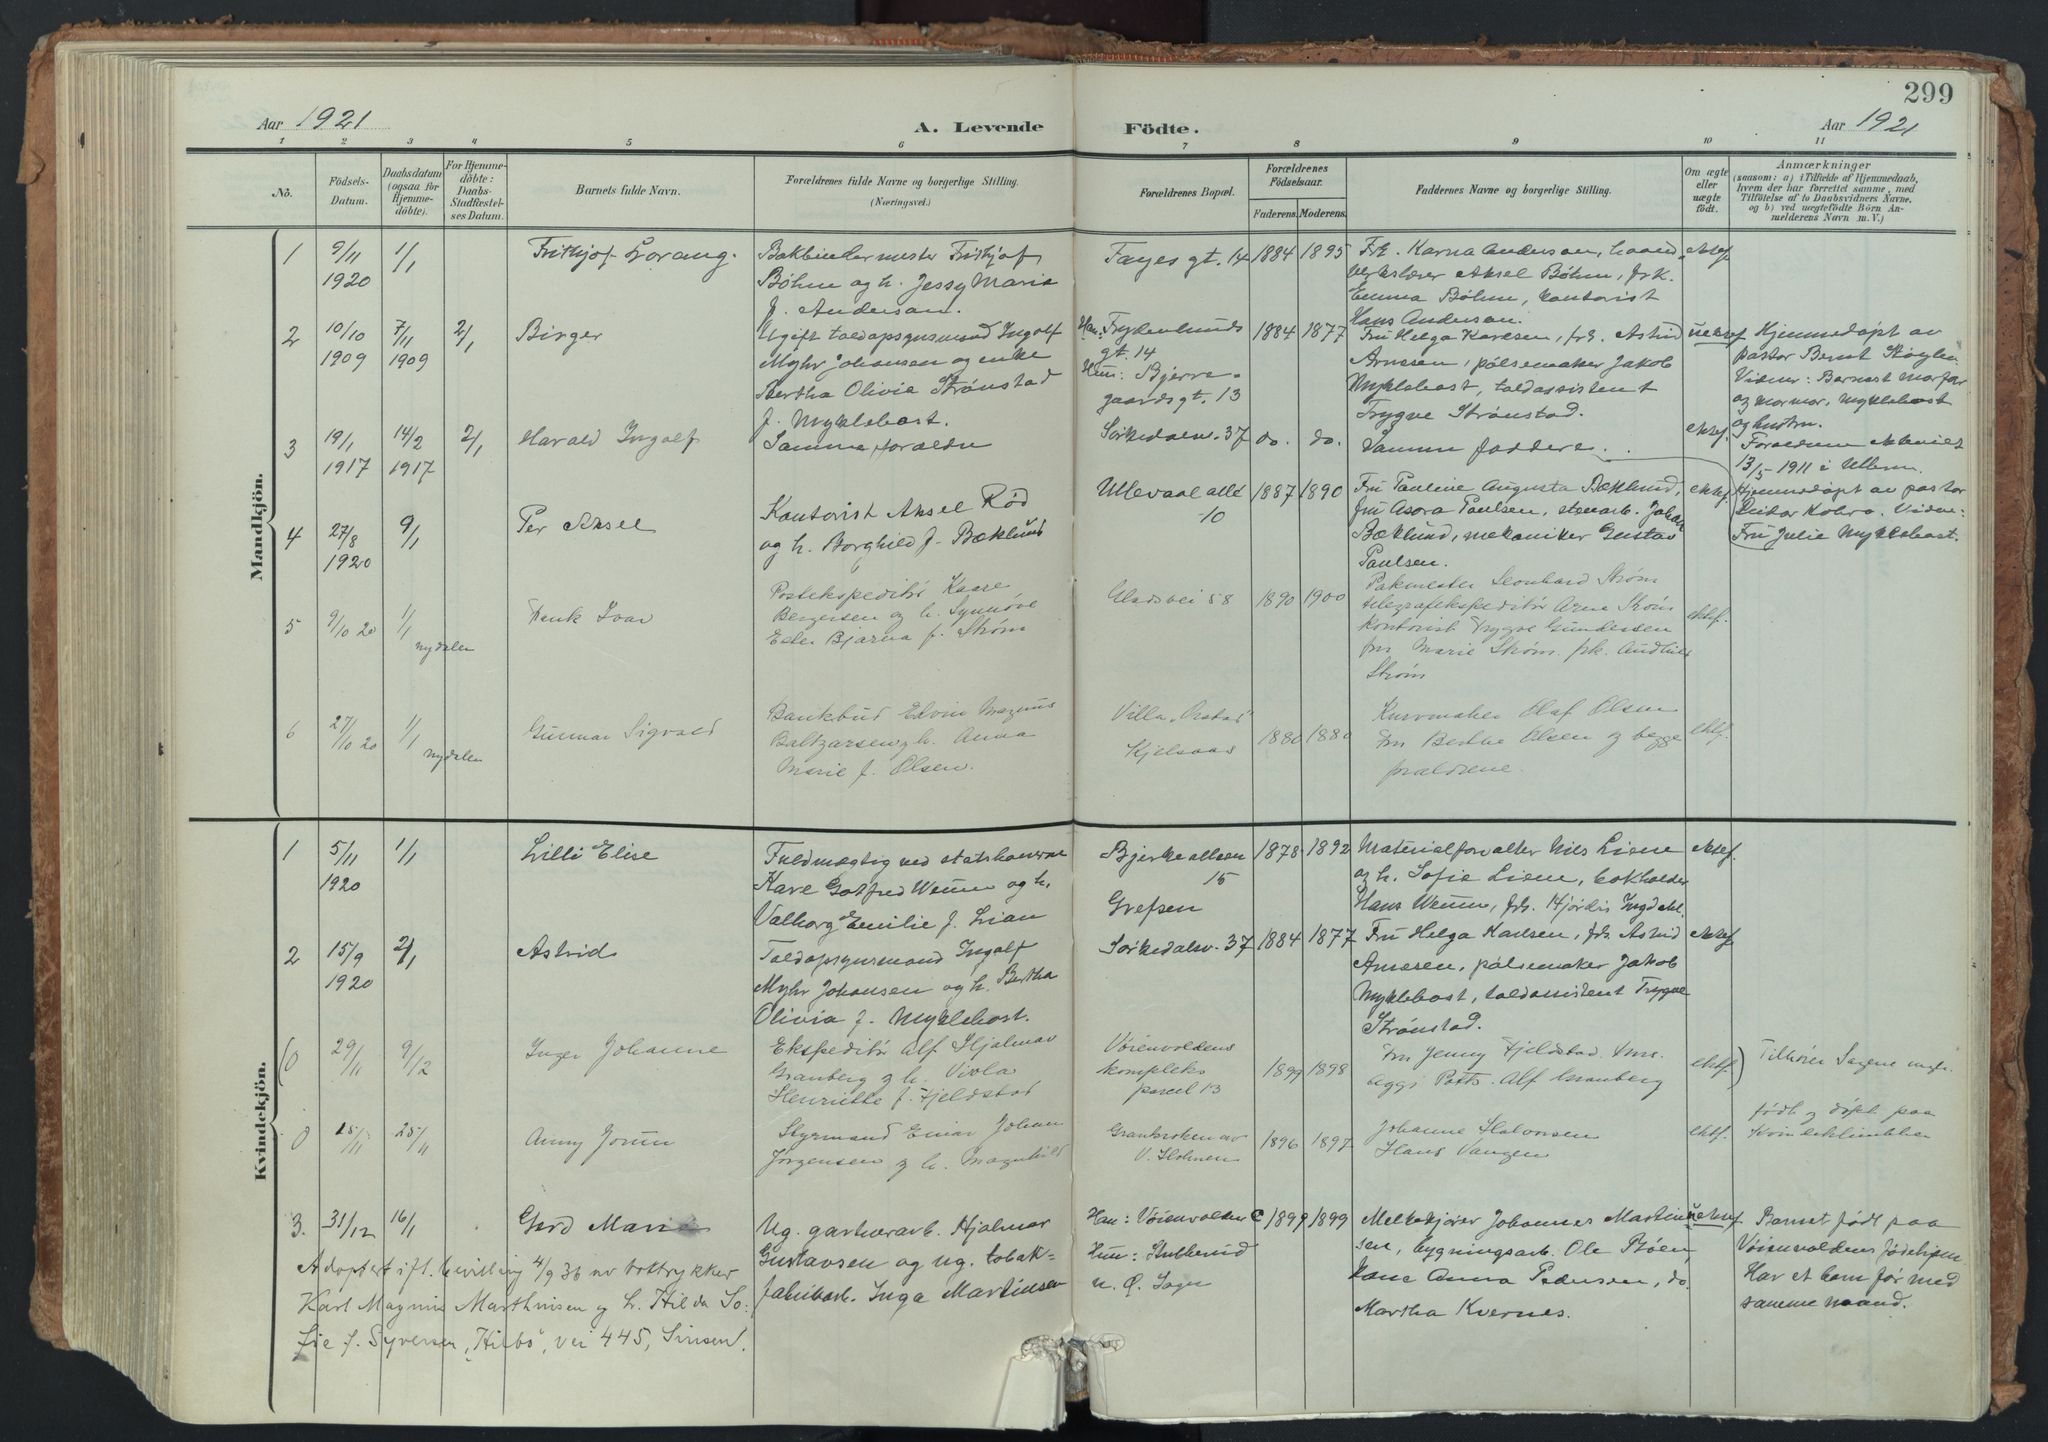 299
Aar 1921
A. Levende
Födte.
Aar 1921
1 2 3 4 5 6 7 8 9 10 11
Nö.
Födsels-
Datum.
Daabsdatum
(ogsaa for
Hjemme-
döbte).
For Hjemme-
döbte:
Daabs-
Stadfæstel-
ses Datum.
Barnets fulde Navn.
Forældrenes fulde Navne og borgerlige Stilling.
(Næringsvei.)
Forældrenes Bopæl.
Forældrenes
Födselsaar.
Faderens. Moderens.
Faddernes Navne og borgerlige Stilling.
Om ægte
eller
uægte
födt.
Anmærkninger
(saasom: a) i Tilfælde af Hjemmedaab,
hvem der har forrettet samme, med
Tilföielse af to Daabsvidners Navne,
og b) ved uægtefödte Börn An-
melderens Navn m. V.)
Mandkjön.
1
9/11
1920
1/1
Frithjof
Bokbindermester Frithjof
Bøhm og h. Jessy Marie
f. Anderson.
Fayes gt. 14
1884 1895
Frk. Karna Anderson, haand
verkslærer Aksel Bøhm, frk.
Emma Bøhm, kontorist
Hans Anderson.
ektef.
2
10/10
1909
7/11
1909
2/1
Birger
Ugift toldopsynsmand Ingolf
Myhr Johansen og enke
Bertha Olivia Strønstad
f. Myklebost.
Han: Frydenlunds
gt. 14
Hun: Bjerre-
gaardsgt. 13
1884 1877
Fru Helga Karlsen, frk. Astrid
Arnesen, pølsemaker Jakob
Myklebost, toldassistent
Trygve Strønstad.
uektef.
Hjemmedøpt av
pastor Bernt Støylen
Vidner: Barnets morfar
og mormor, Myklebost
og hustru.
3
19/1
1917
14/2
1917
2/1
Harald Ingolf
Samme forældre
Sørkedalsv. 37
do. do.
Samme faddere.
ektef.
Forældrene ekteviet
13/5 1911 i Ullern.
Hjemmedøpt av pastor
Kobro. Vidne:
Fru Julie Myklebost.
4
27/8
1920
9/1
Per Aksel
Kontorist Aksel Rød
og h. Borghild f. Bæklund
Ullevaal allé
10
1887 1890
Fru Pauline Augusta Bæklund,
fru Asora Paulsen, stenarb. Johan
Bæklund, mekaniker Gustav
Paulsen.
ektef.
5
9/10 20
1/1
Nydalen
Henk Ivar
Postekspeditør Kaare
Bergersen og h. Synnøve
Bjarna f. Strøm
Uladsvei 58
1890 1900
Pakmester Leonhard Strøm
telegrafekspeditør Arne Strøm
kontorist Trygve Gundersen
fru Marie Strøm. frk. Audhild
Strøm
ektef.
6
27/10 20
1/1
Nydalen
Gunnar Sigvald
Bankbud Edvin Magnus
Baltzarsen og h. Anna
Marie f. Olsen.
Villa
Kjelsaas
1880 1880
Kurvmaker Olaf Olsen
fru Berthe Olsen og begge
forældrene.
ektf.
Kvindekjön.
1
5/11
1920
1/1
Lilli Elise
Fuldmægtig ved statsbanerne
Kare Gotfred Wenn og h.
Valborg Emilie f. Lian
Bjerkealleen
15
Grefsen
1878 1892
Materialforvalter Nils Liene
og h. Sofie Liene, bokholder
Hans Wenn, frk. Hjørdis
ektef.
2
15/9
1920
2/1
Astrid
Toldopsynsmand Ingolf
Myhr Johansen og h. Bertha
Olivia f. Myklebost.
Sørkedalsv. 37
1884 1877
Fru Helga Karlsen, frk. Astrid
Arnesen, pølsemaker Jakob
Myklebost, toldassistent Trygve
Strønstad.
ektef.
0
29/11
9/12
Inger Johanne
Ekspeditør Alf Hjalmar
Granberg og h. Viola
Henriette f. Fjeldstad
Vøienvoldens
kompleks
parcel 13
1899 1898
Fru Jenny Fjeldstad.
Aggi Potts. Alf Granberg
ektf.
Tilhører Sagene mgh.
0
15/11
25/11
Anny Jorun
Styrmand Einar Johan
Jørgensen og h. Magnhild
V. Holmen
1896 1897
Johanne Halvorsen
Hans Vangen
ektf.
født og døpt paa
Kvindeklinikken
3.
31/12
16/1
Gerd Marie
Ug. gartnerarb. Hjalmar
Gustavsen og ug. tobak-
fabrikarb. Inga Martinsen
Han: Vøienvolden
Hun: Stubberud
n. Ø. Sogn
1899 1899
Melkekjører Johannes Martin
sen, bygningsarb. Ole Bøen,
Anna Pedersen, do
Martha Kvernes.
uektef.
Barnet født paa
Vøienvoldens fødehjem
Har et barn før med
samme mand.
Adoptert ifl. bevilling 4/9 36 av boktrykker
Karl Magnus Marthinsen og h. Hilda So-
fie f. Syversen, "Hilbo", vei 445, Sinsen.